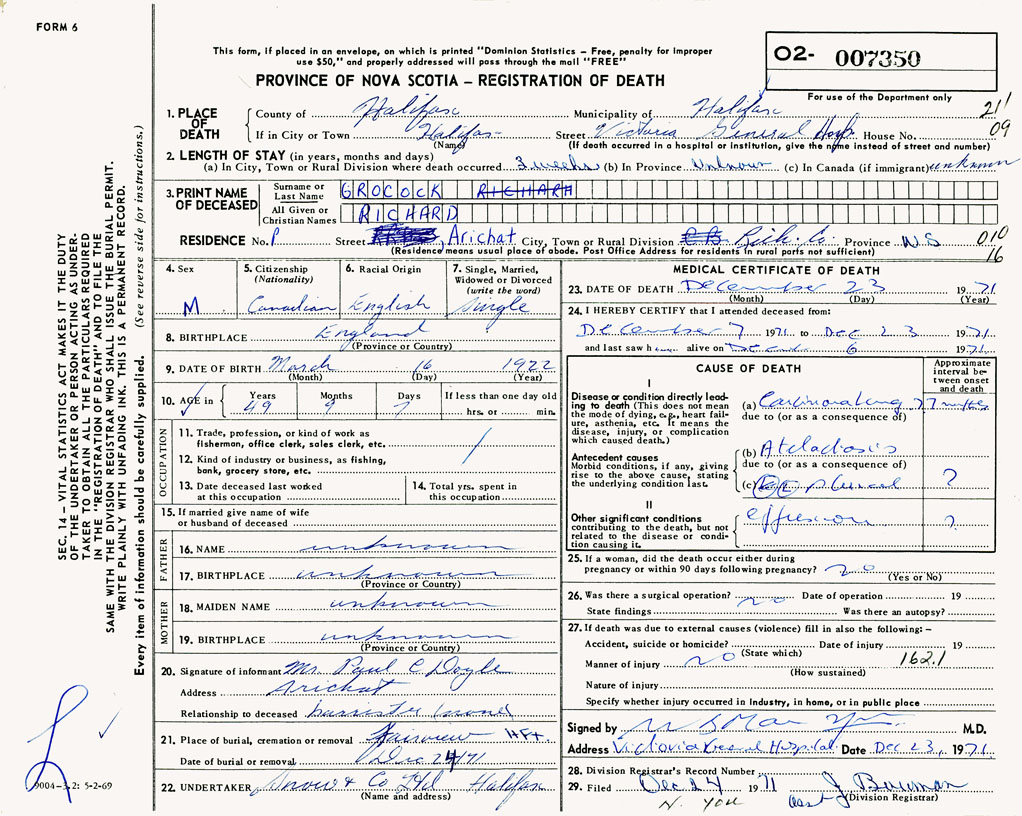 FORM 6
This form, if placed in an envelope, on which is printed "Dominion Statistics – Free, penalty for improper
use $50," and properly addressed will pass through the mail "FREE"
PROVINCE OF NOVA SCOTIA – REGISTRATION OF DEATH
02- 007350
For use of the Department only
21'
09
1. PLACE OF DEATH
County of Halifax Municipality of Halifax
If in City or Town Halifax Street Victoria General Hosp. House No.
(Name) (If death occurred in a hospital or institution, give the name instead of street and number)
2. LENGTH OF STAY (in years, months and days)
(a) In City, Town or Rural Division where death occurred 3 weeks (b) In Province Unknown (c) In Canada (if immigrant) unknown
3. PRINT NAME OF DECEASED
Surname or Last Name GROCOCK RICHARH
All Given or Christian Names RICHARD
RESIDENCE No. Street , Arichat City, Town or Rural Division Rich. Co Province N.S 010
(Residence means usual place of abode. Post Office Address for residents in rural parts not sufficient) 16
4. Sex
M
5. Citizenship
(Nationality)
Canadian
6. Racial Origin
English
7. Single, Married,
Widowed or Divorced
(write the word)
single
8. BIRTHPLACE England
(Province or Country)
9. DATE OF BIRTH March 16 1922
(Month) (Day) (Year)
10. AGE in
Years Months Days If less than one day old
49 9 7 hrs. or min.
OCCUPATION
11. Trade, profession, or kind of work as
fisherman, office clerk, sales clerk, etc.
12. Kind of industry or business, as fishing,
bank, grocery store, etc.
13. Date deceased last worked
at this occupation
14. Total yrs. spent in
this occupation
15. If married give name of wife
or husband of deceased
FATHER
16. NAME unknown
17. BIRTHPLACE unknown
(Province or Country)
MOTHER
18. MAIDEN NAME unknown
19. BIRTHPLACE unknown
(Province or Country)
20. Signature of informant Mr. Paul C Doyle
Address Arichat
Relationship to deceased
21. Place of burial, cremation or removal Fairview HFX
Date of burial or removal Dec 24/71
22. UNDERTAKER Snow & Co Ltd Halifax
(Name and address)
MEDICAL CERTIFICATE OF DEATH
23. DATE OF DEATH December 23 1971
(Month) (Day) (Year)
24. I HEREBY CERTIFY that I attended deceased from:
December 7 1971 to Dec 23 1971
and last saw h alive on 6 1971
CAUSE OF DEATH
Approximate
interval be-
tween onset
and death
I
Disease or condition directly lead-
ing to death (This does not mean
the mode of dying, e.g., heart fail-
ure, asthenia, etc. It means the
disease, injury, or complication
which caused death.)
(a) Carcinoma Lung
due to (or as a consequence of)
Antecedent causes
Morbid conditions, if any, giving
rise to the above cause, stating
the underlying condition last.
(b)
due to (or as a consequence of)
(c) pleural ?
II
Other significant conditions
contributing to the death, but not
related to the disease or condi-
tion causing it.
effusion ?
25. If a woman, did the death occur either during
pregnancy or within 90 days following pregnancy? no
(Yes or No)
26. Was there a surgical operation? no Date of operation 19
State findings Was there an autopsy?
27. If death was due to external causes (violence) fill in also the following: –
Accident, suicide or homicide? Date of injury 19
(State which)
Manner of injury no 162.1
(How sustained)
Nature of injury
Specify whether injury occurred in industry, in home, or in public place
Signed by M.D.
Address Victoria General Hospital Date Dec 23, 1971
28. Division Registrar's Record Number
29. Filed Dec 24 1971 J Bauman
(Division Registrar)
SEC. 14 – VITAL STATISTICS ACT MAKES IT THE DUTY
OF THE UNDERTAKER OR PERSON ACTING AS UNDER-
TAKER TO OBTAIN ALL THE PARTICULARS REQUIRED
IN THE "REGISTRATION OF DEATH" AND TO FILE THE
SAME WITH THE DIVISION REGISTRAR WHO SHALL ISSUE THE BURIAL PERMIT.
WRITE PLAINLY WITH UNFADING INK. THIS IS A PERMANENT RECORD.
Every item of information should be carefully supplied. (See reverse side for instructions.)
5-2-69